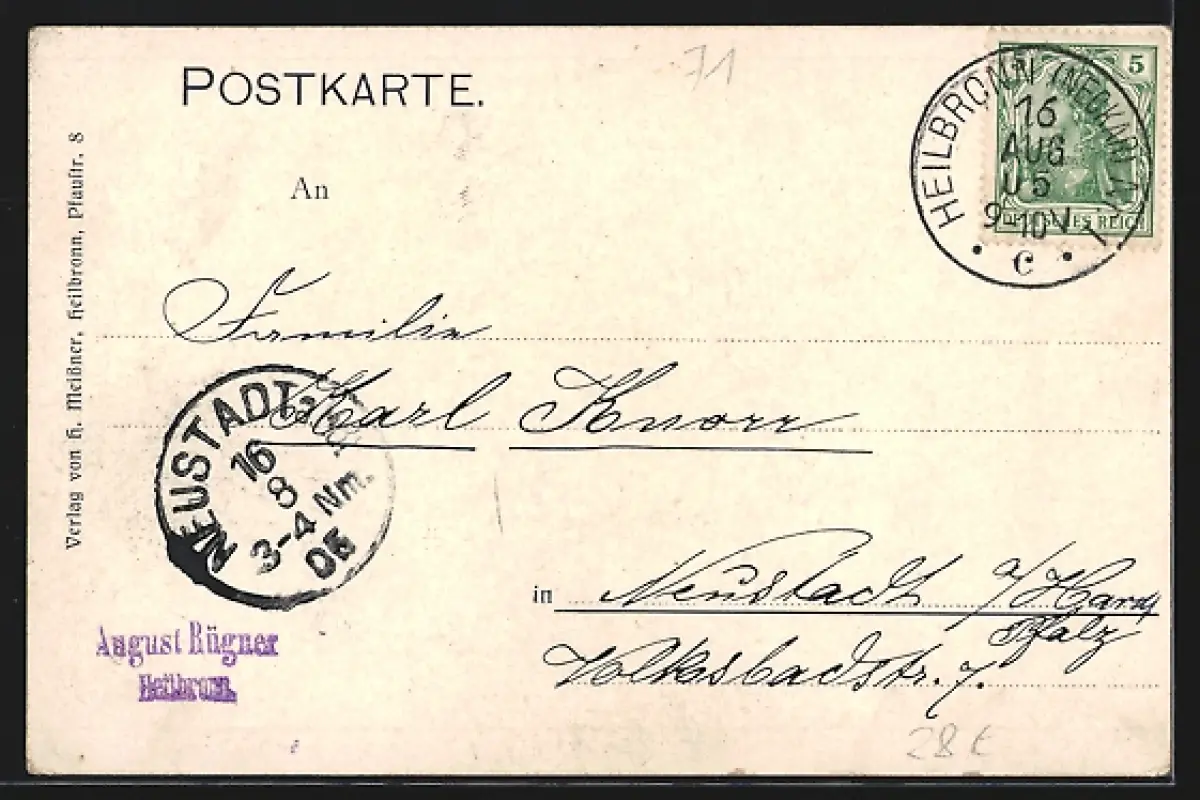 POSTKARTE.
71
5
DEUTSCHES REICH
HEILBRONN (NECKAR)
16
AUG
05
9-10V
1
• c •
An
Familie
Karl Knorr
NEUSTADT
16
8
3-4 Nm.
05
in Neustadt a/Hardt
Pfalz
Volksbadstr. 7.
August Bügner
Heilbronn.
Verlag von H. Meißner, Heilbronn, Pfaustr. 8
28 €